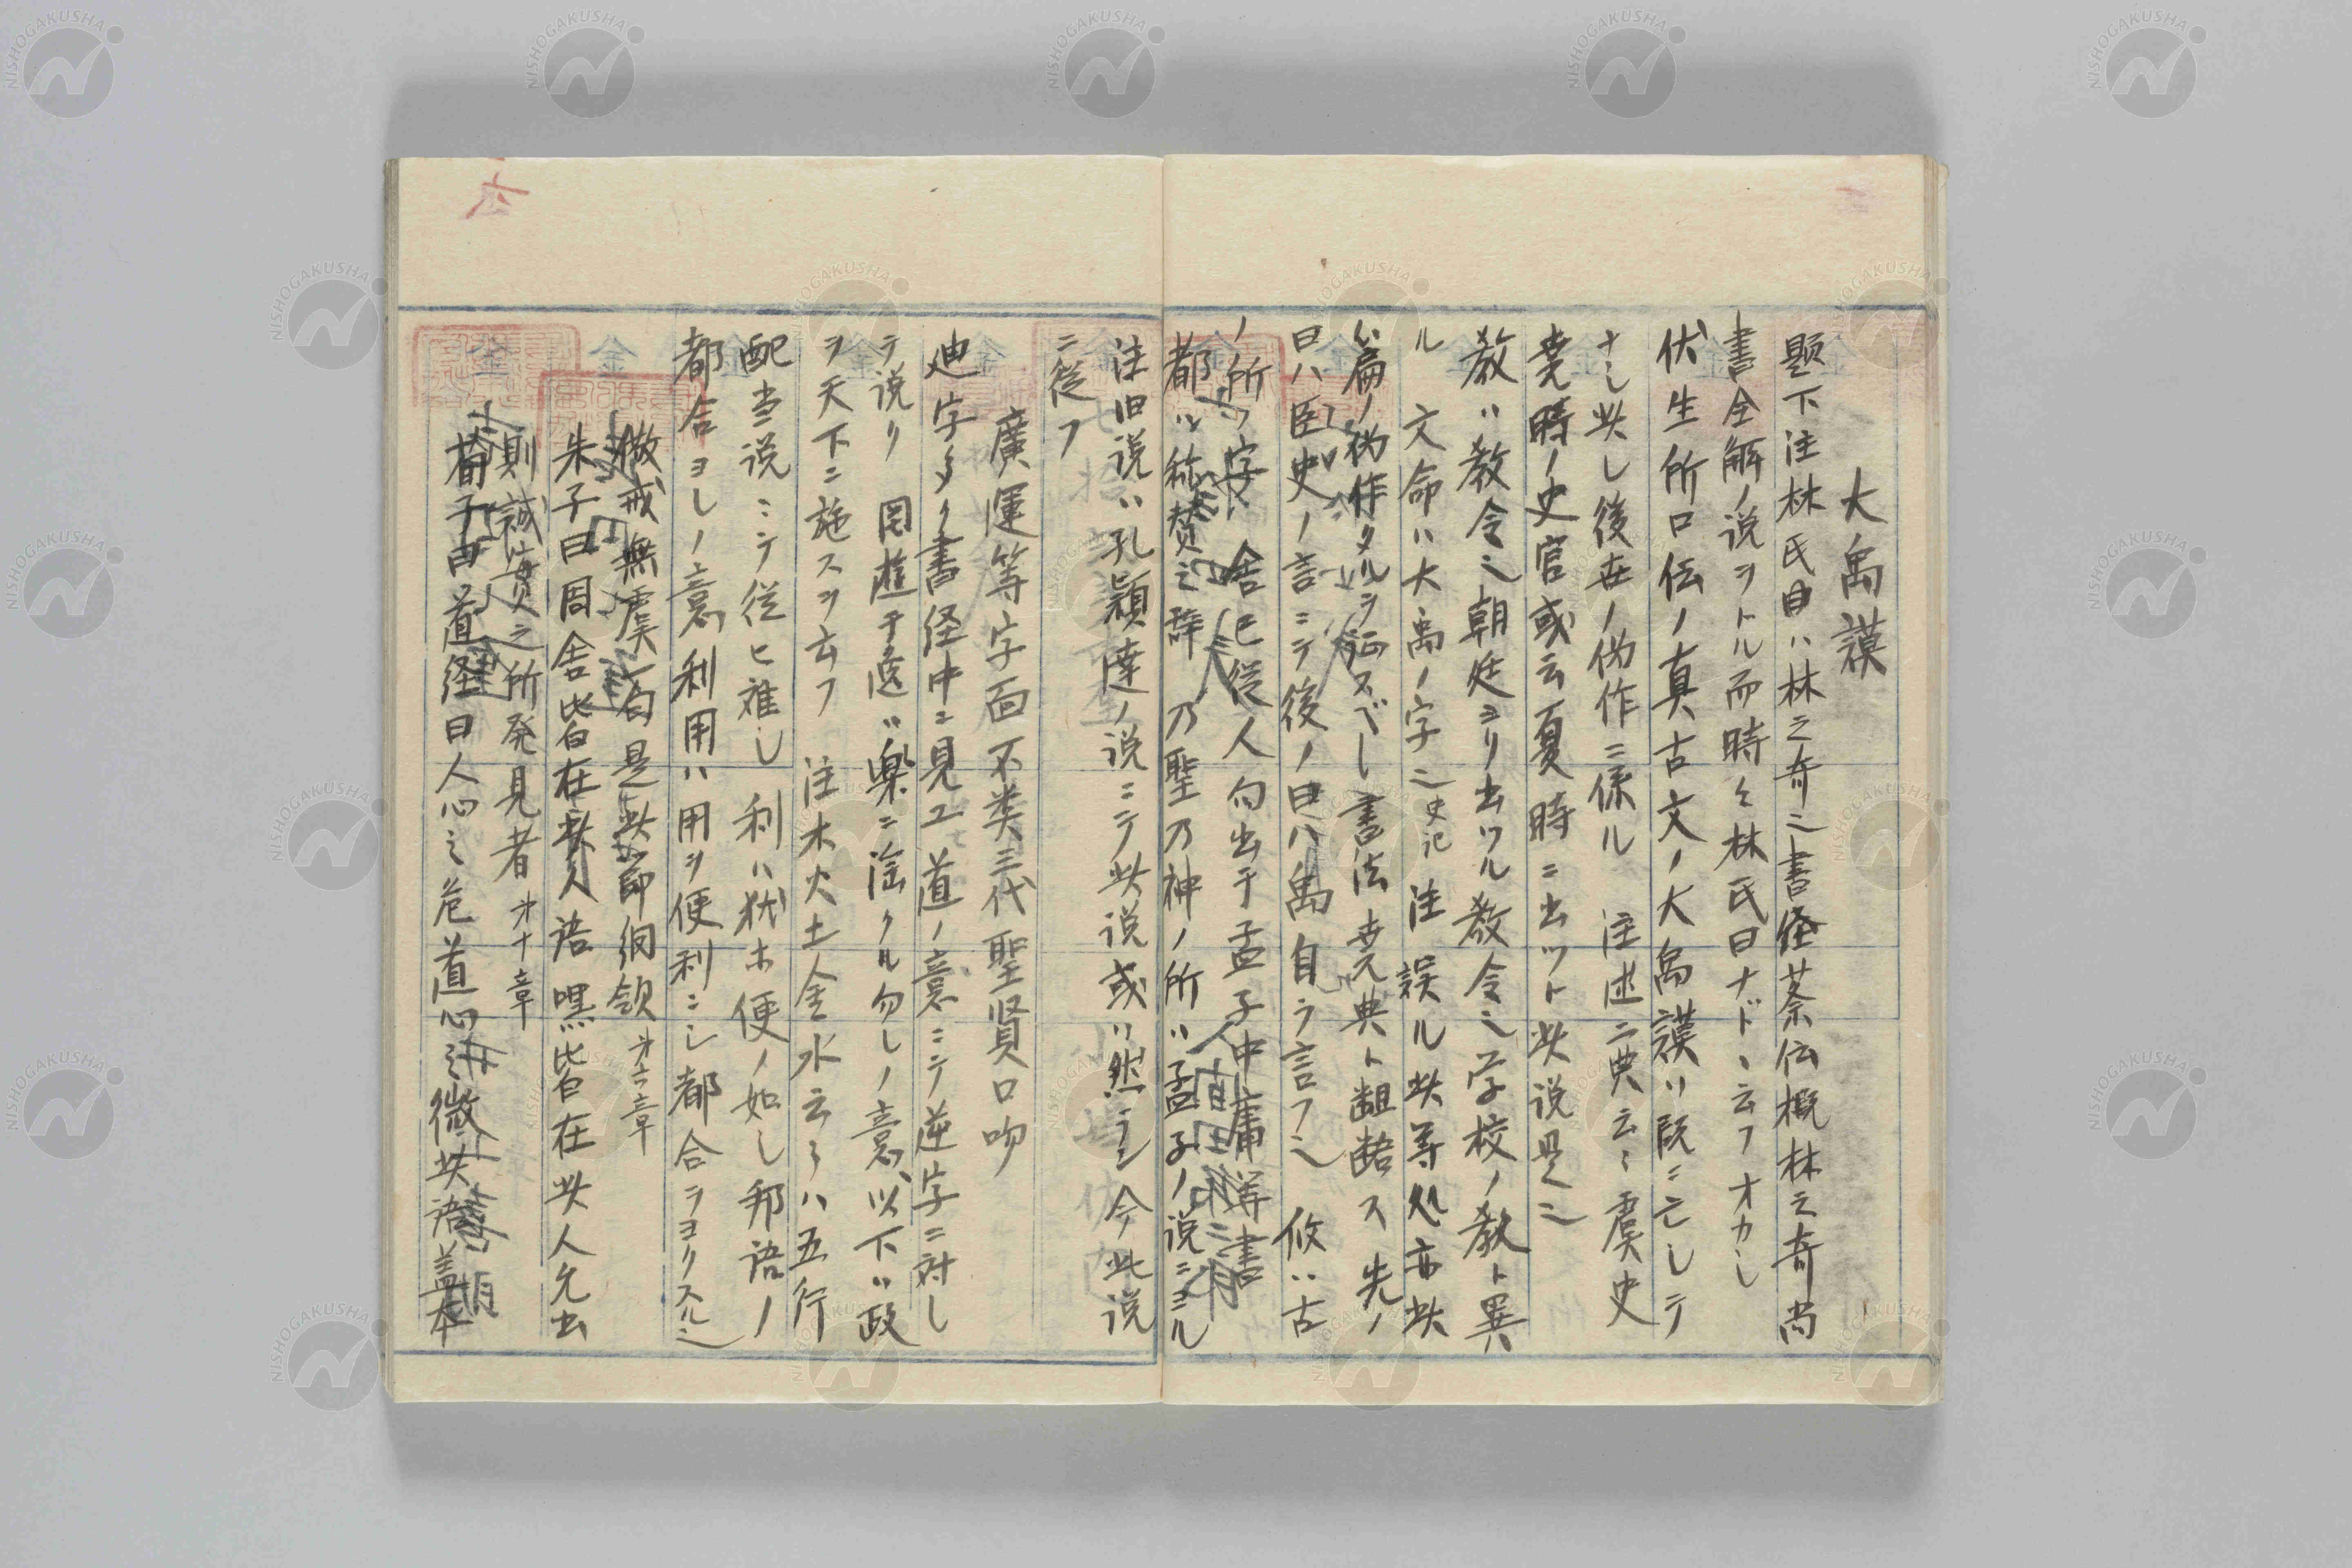 大禹謨
題下注林氏曰ハ林之奇ニ書経蔡伝概林之奇尚
書全解ノ説ヲトル而時々林氏曰ナドヽ云フオカし
伏生所口伝ノ真古文ノ大禹謨ハ既ニ亡しテ
ナし此し後世ノ偽作ニ係ル 注述二典云々虞史
堯時ノ史官或云夏時ニ出ツト此説是ニ
教ハ教令ニ朝廷ヨリ出ツル教令ニ学校ノ教ト異
ル 文命ハ大禹ノ字ニ史記 注 誤ル此等処亦此
篇ノ偽作タルヲ証スベし書法堯典ト齟齬ス 先ノ
曰ハ臣史ノ言ニテ後ノ曰ハ禹自ラ言フニ 攸ハ古
ノ所ノ字 舎己従人句出于孟子中庸 書
都ハ称賛之辞 乃聖乃神ノ所ハ孟子ノ説ニヨル
注旧説ハ孔穎達ノ説ニテ此説或ハ然ラン 今此説
ニ従フ
廣運等字面不类三代聖賢口吻
迪字多ク書経中ニ見エ道ノ意ニテ逆字ニ対し
テ説リ 罔遊于逸ハ楽ニ淫クル勿しノ意 以下ハ政
ヲ天下ニ施スヲ云フ 注木火土金水云々ハ五行
配当説ニテ従ヒ難し 利ハ猶ホ便ノ如し邦語ノ
都合ヨしノ意利用ハ用ヲ便利ニし都合ヲヨクスルニ
儆戒無虞一句是此節綱領 オ六章
朱子曰周舎皆在此人語 嘿皆在此人允出
則誠実之所発見者 オ十章
荀子曰道経曰人心之危道心之微此語蓋本